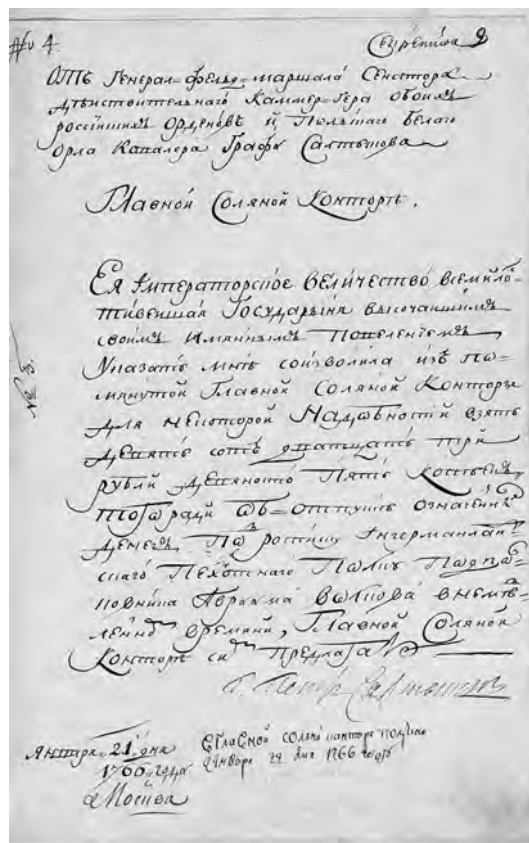 № 4. Секретно 9
Отъ Генерал=фелдъ=маршала Сенатора
дѣиствителнаго Каммер=Гера обоихъ
россиискихъ Орденовъ й Польскаго белаго
Орла Кавалера Графа Салтыкова
Главной Соляной Конторѣ.
Ея Императорское Величество всемило=
тивеишая Государыня высочаишимъ
своимъ Имяннымъ Повелениемъ
Указать мнѣ соизволила изъ по=
мянутой Главной Соляной Конторы
для некоторой Надобности взять
девять сотъ дватцать три
рубли девяносто Пять копѣекъ,
того ради объ=отпускѣ означеннѣ
денегъ По роспискѣ Ингерманлан=
скаго Пехотнаго Полку Подпо=
ковника Авраама Волкова внемѣд=
леннѡ времяни, Главной Соляной
Конторѣ симъ Предлагаю
Г. Петръ Салтыковъ
Января 21: дня
1766 года
Москва
В Главной соляной канторе получено
генваря 22 дня 1766 года